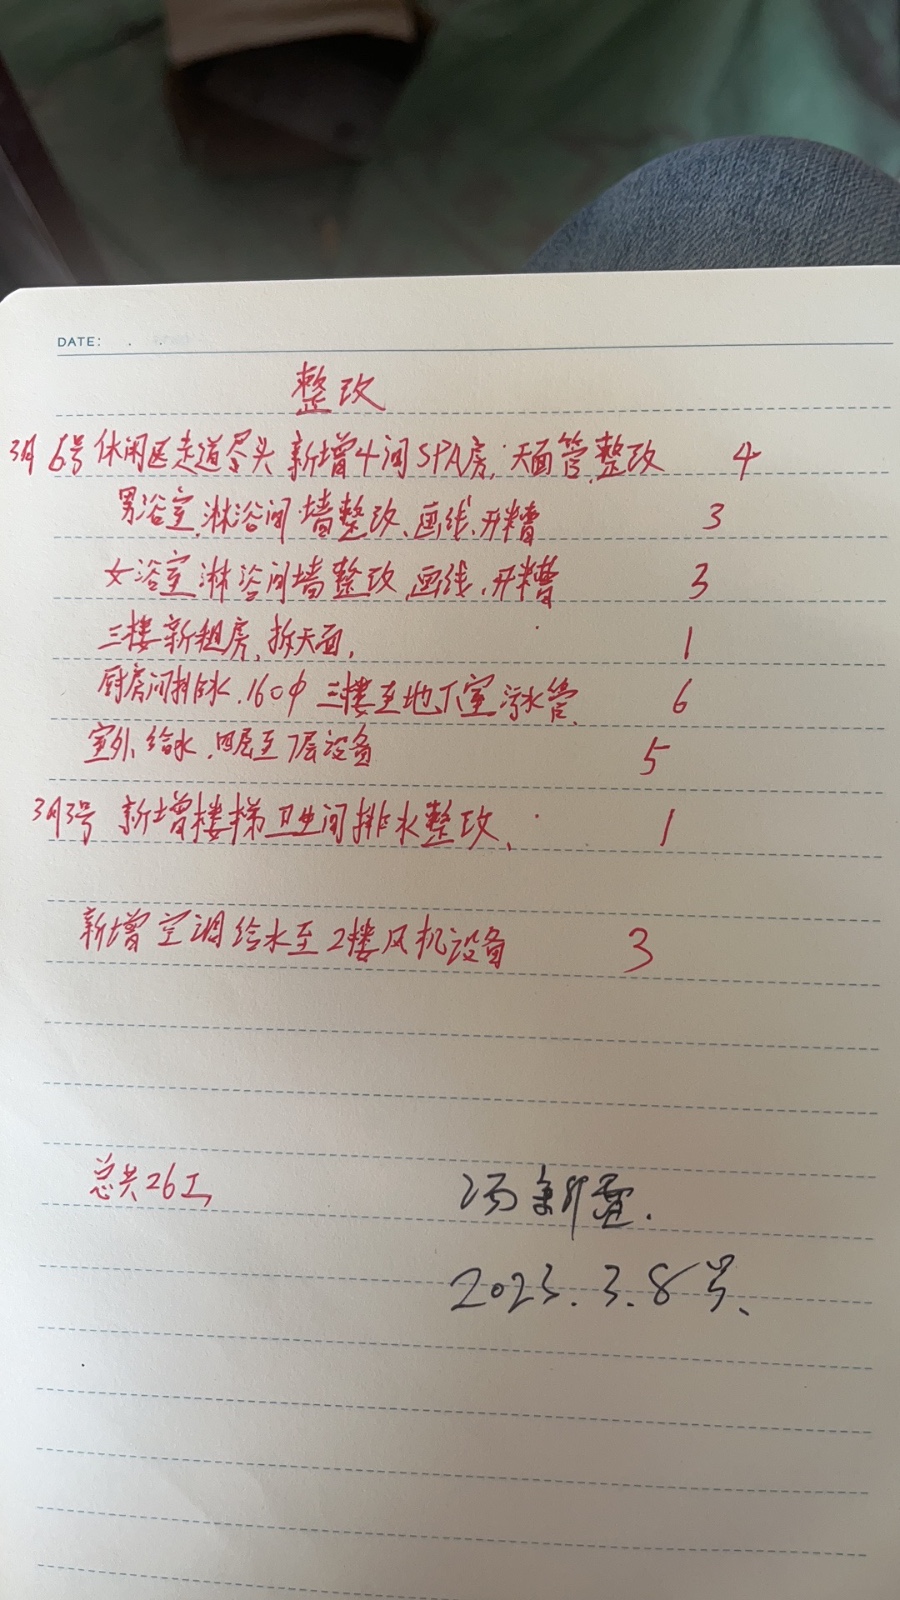 DATE: . .
整改
3月6号休闲区走道尽头新增4间SPA房,天面管整改 4
男浴室,淋浴间墙整改、画线、开糟 3
女浴室淋浴间墙整改,画线,开糟 3
三楼新租房,拆天面, 1
厨房间排水.160φ三楼至地下室污水管 6
室外给水,四层至7层设备 5
3月3号 新增楼梯卫生间排水整改、 1
新增空调给水至2楼风机设备 3
总共26工 冯新雷.
2023.3.8号、